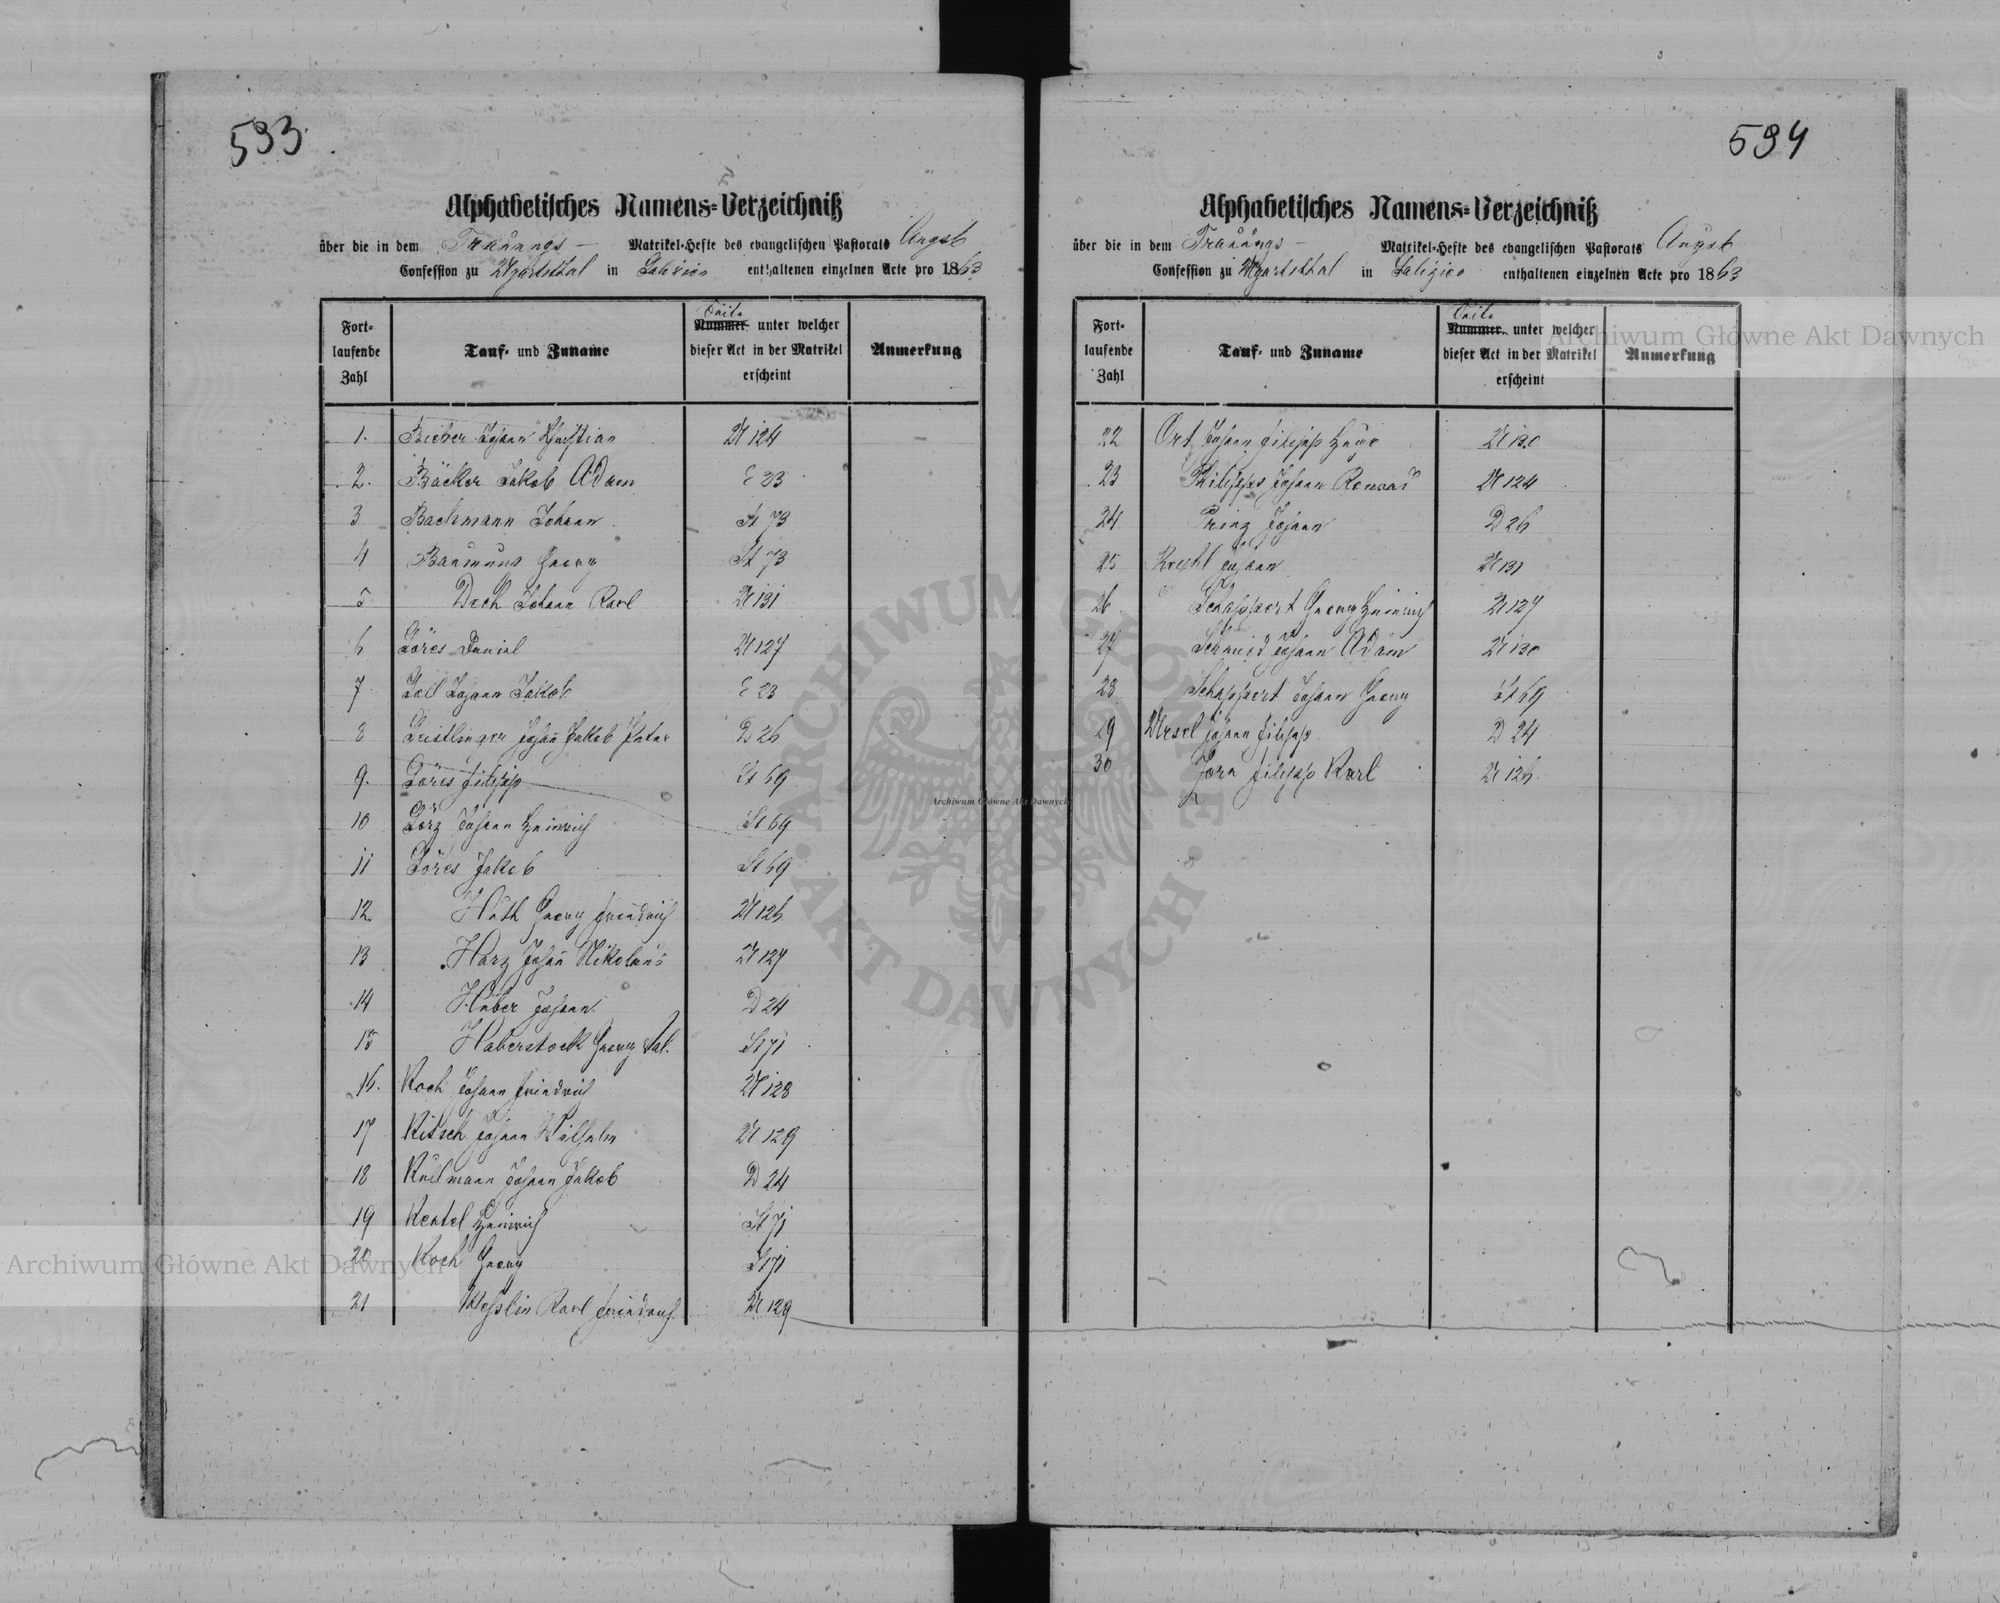 593.
Alphabetisches Namens=Verzeichniß
über die in dem Trauungs – Matrikel-Hefte des evangelischen Pastorats Augsb
Confession zu Ugartsthal in Galizien enthaltenen einzelnen Acte pro 1863
Fort-
laufende
Zahl
Tauf- und Zuname
Seite
Nummer unter welcher
dieser Act in der Matrikel
erscheint
Anmerkung
1. Bieber Johann Christian U 124
2. Bäcker Jakob Adam E 23
3 Bachmann Johann St 73
4 Baumung Georg St 73
5 Dech Johann Karl U 131
6 Göres Daniel U 127
7 Johann Jakob E 23
8 Geistlinger Johañ Jakob Peter D 26
9. Göres Filipp St 69
10 Görz Johann Heinrich St 69
11 Göres Jakob St 69
12. Huth Georg Friedrich U 126
13 Harz Johañ Nikolaus U 127
14 Huber Johann D 24
15 Haberstock Georg Val. St 71
16. Koch Johann Friedrich U 128
17 Kitsch Johann Wilhelm U 129
18 Kullmann Johann Jakob D 24
19 Kentel Heinrich St 71
20 Koch Georg St 71
21 Karl Friedrich U 129
594
Alphabetisches Namens=Verzeichniß
über die in dem Trauungs – Matrikel-Hefte des evangelischen Pastorats Augsb
Confession zu Ugartsthal in Galizien enthaltenen einzelnen Acte pro 1863
Fort-
laufende
Zahl
Tauf- und Zuname
Seite
Nummer unter welcher
dieser Act in der Matrikel
erscheint
Anmerkung
22 Ort Johann Filipp U 130
23 Philipps Johann Konrad U 124
24 Prinz Johann D 26
25 Johann U 131
26 Schappert Georg Heinrich U 127
27 Schmid Johann Adam U 130
28 Schappert Johann Georg St 69
29 Ursel Johann Filipp D 24
30 Zorn Filipp Karl U 126
Archiwum Główne Akt Dawnych
Archiwum Główne Akt Dawnych
Archiwum Główne Akt Dawnych
ARCHIWUM GŁÓWNE • AKT DAWNYCH •